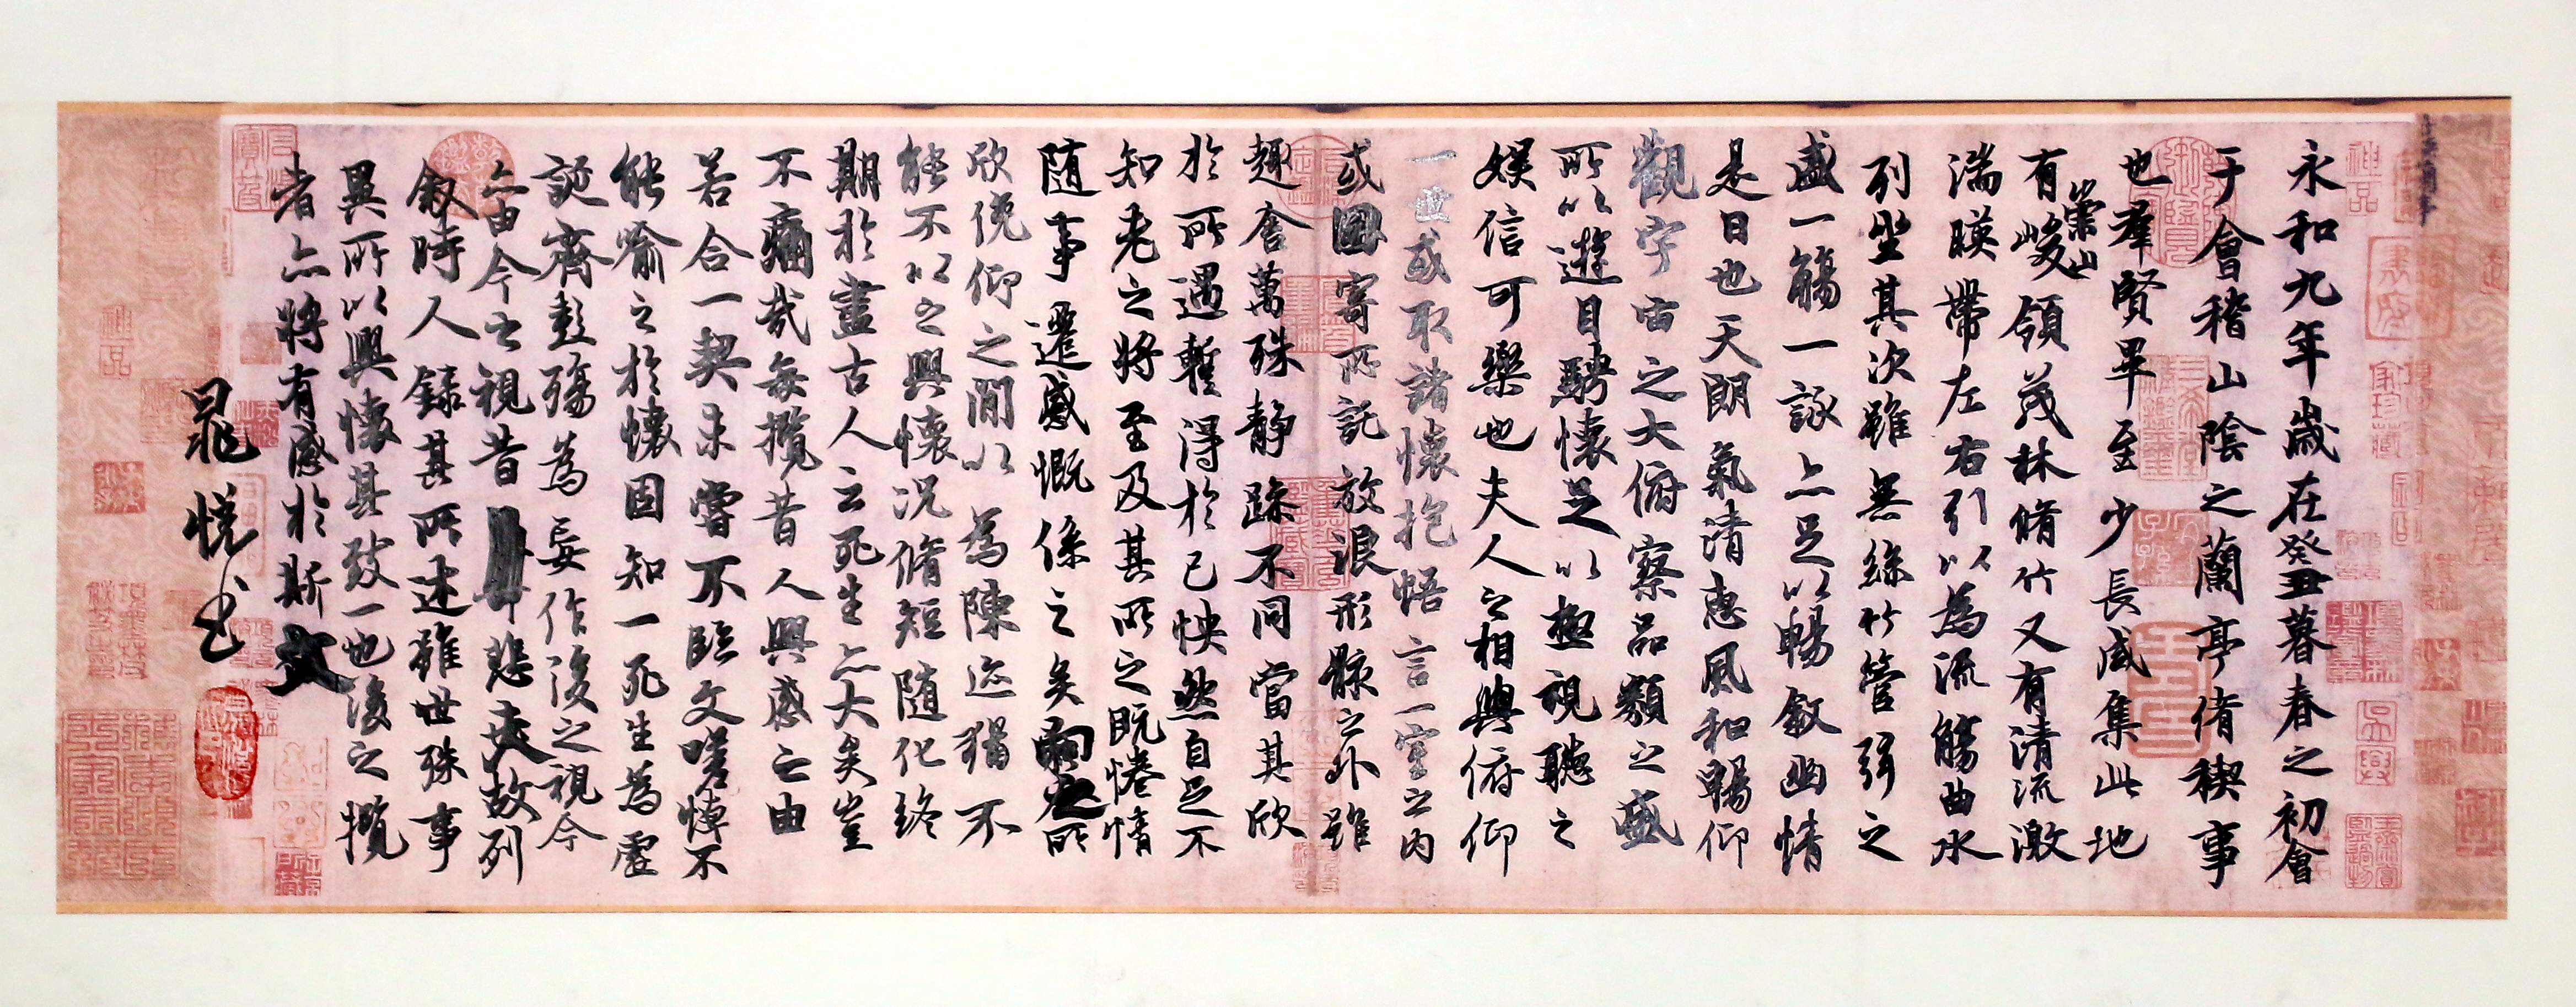 永和九年歲在癸丑暮春之初會
于會稽山陰之蘭亭脩禊事
也羣賢畢至少長咸集此地
有崇山峻領茂林脩竹又有清流激
湍暎帶左右引以為流觴曲水
列坐其次雖無絲竹管弦之
盛一觴一詠亦足以暢敘幽情
是日也天朗氣清惠風和暢仰
觀宇宙之大俯察品類之盛
所以遊目騁懷足以極視聽之
娛信可樂也夫人之相與俯仰
一世或取諸懷抱悟言一室之內
或因寄所託放浪形骸之外雖
趣舍萬殊靜躁不同當其欣
於所遇暫得於己怏然自足不
知老之將至及其所之既惓情
隨事遷感慨係之矣向之所
欣俛仰之閒以為陳迹猶不
能不以之興懷況脩短隨化終
期於盡古人云死生亦大矣豈
不痛哉每攬昔人興感之由
若合一契未嘗不臨文嗟悼不
能喻之於懷固知一死生為虛
誕齊彭殤為妄作後之視今
亦由今之視昔悲夫故列
敘時人錄其所述雖世殊事
異所以興懷其致一也後之攬
者亦將有感於斯文
晁悅書